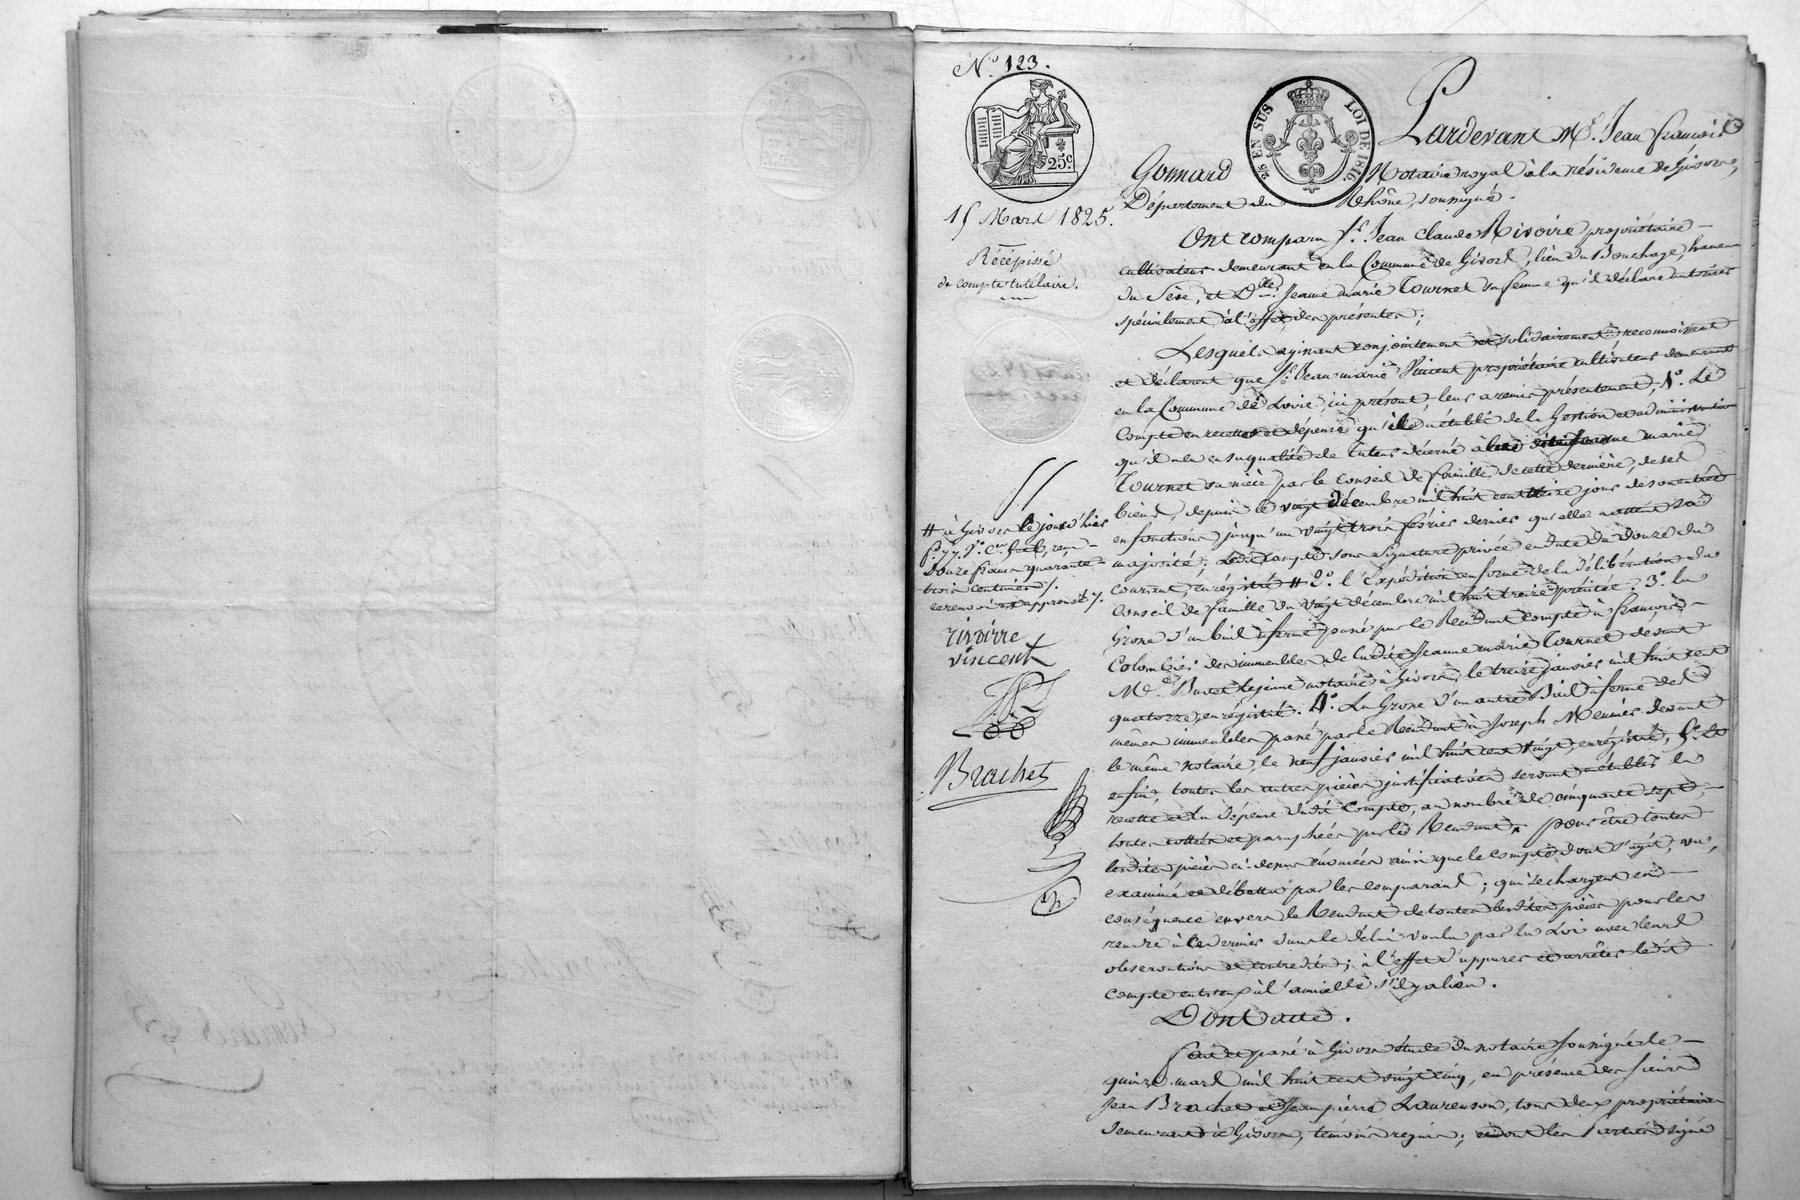 N.° 123.
25 c.
2/5 EN SUS LOI DE 1816.
15 Mars 1825.
Récépissé
de compte tutélaire.
Pardevant M.e Jean françois
Gonnard Notaire royal à la résidence de Givors,
Département du Rhône, soussigné.
Ont comparu S.r Jean Claude Rivoire propriétaire
cultivateur demeurant en la Commune de Givors, lieu du Bouchage,
et D.lle Jeanne marie Tournet sa femme qu'il déclare autoriser
spécialement à l'effet des présentes;
Lesquels agissant conjointement et solidairement reconnoissent
et déclarent que S.r Jean marie Vincent propriétaire cultivateur demeurant
en la Commune de Loire, ici présent, leur a remis présentement, 1.° Le
Compte en recette et dépense qu'il a établi de la Gestion et administration
qu'il a eu en sa qualité de tuteur décerné à marie
Tournet sa nièce par le Conseil de famille de cette dernière, de ses
biens, depuis le vingt décembre mil huit cent treize jour de son entrée
en fonctions jusqu'au vingt trois février dernier qu'elle a atteint sa
majorité; Ledit Compte sous signature privée en date du douze du
courant, enrégistré # 2.° l'Expédition en forme de la Délibération du
Conseil de famille du vingt décembre mil huit treize précitée; 3.° la
Grosse d'un bail à ferme passé par le Rendant compte à françois
Colombier des immeubles de ladite Jeanne marie Tournet devant
M.e Buret Lejeune notaire à Givors, le treize janvier mil huit cent
quatorze, enrégistré. 4.° La Grosse d'un autre Bail à ferme des
mêmes immeubles passé par le Rendant à Joseph Meunier devant
le même notaire, le neuf janvier mil huit cent vingt, enrégistré, 5.° Et
enfin, toutes les autres pièces justificatives servant à établir la
recette et la dépense dudit Compte, au nombre de cinquante sept,
toutes cottées et paraphées par le Rendant, pour être toutes
lesdites pièces ci-dessus énoncées ainsi que le compte dont s'agit, vu,
examiné et débattu par les comparants; qui se chargent en
conséquence envers le Rendant de toutes lesdites pièces pour les
rendre à ce dernier dans le délai voulu par la Loi avec leurs
observations et contredits; à l'effet d'appurer et arrêter ledit
compte entr'eux à l'amiable s'il y a lieu.
Dont acte.
fait et passé à Givors étude du notaire soussigné le
quinze mars mil huit cent vingt cinq, en présence des sieurs
Jean Brachet et Jean pierre Laurenson, tous deux propriétaires
demeurant à Givors, témoins requis; et ont les parties signé
# à Givors le jour d'hier
f.° 77. V.° C.es 5 et 6, reçu
douze francs quarante
trois centimes /.
ce renvoi est approuvé /.
rivoire
vincent
Brachet